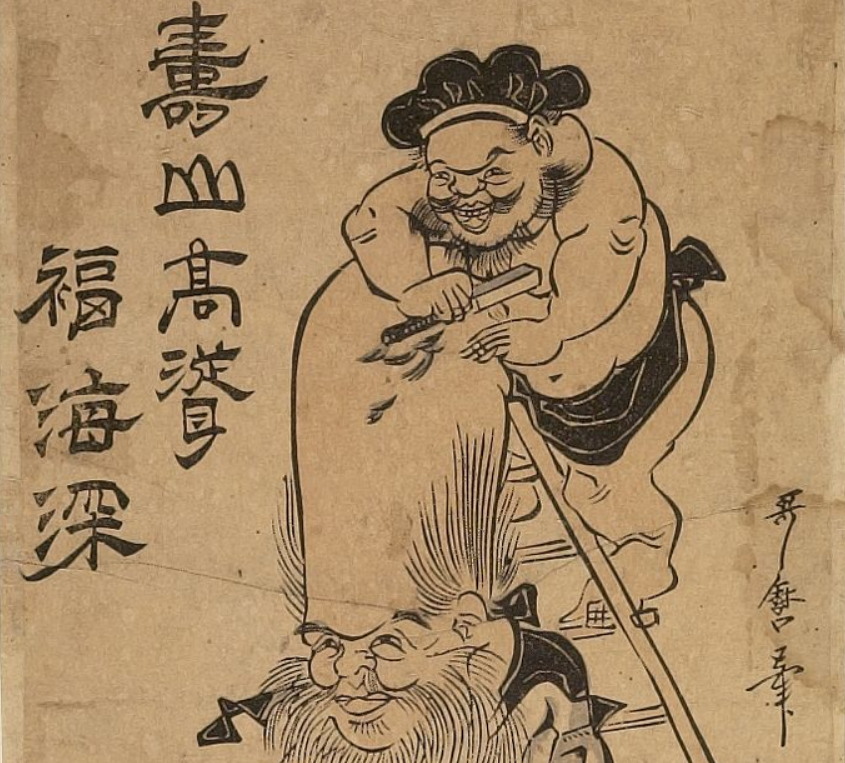 壽山高聳
福海深
哥麿筆